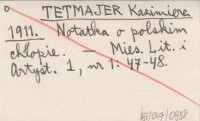 TETMAJER Kazimierz
1911. Notatka o polskim
chłopie. — Mies. Lit. i
Artyst. 1, nr 1: 47-48.